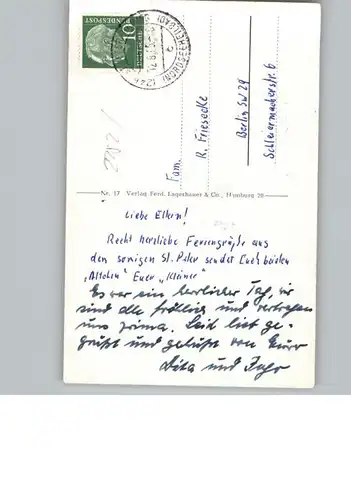 DEUTSCHE BUNDESPOST
10
NORDSEEHEILBAD
Fam.
R. Friesecke
Berlin SW 29
Schleiermacherstr. 6
Nr. 17 Verlag Ferd. Lagerbauer & Co., Hamburg 20
Liebe Eltern!
Recht herzliche Feriengrüße aus
den sonnigen St. Peter sendet Euch beiden
„Altchen" Euer „Kleiner"
Es war ein herrlicher Tag, wir
sind alle fröhlich und vertragen
uns prima. Seid lieb ge-
grüßt und geküßt von Eurer
und